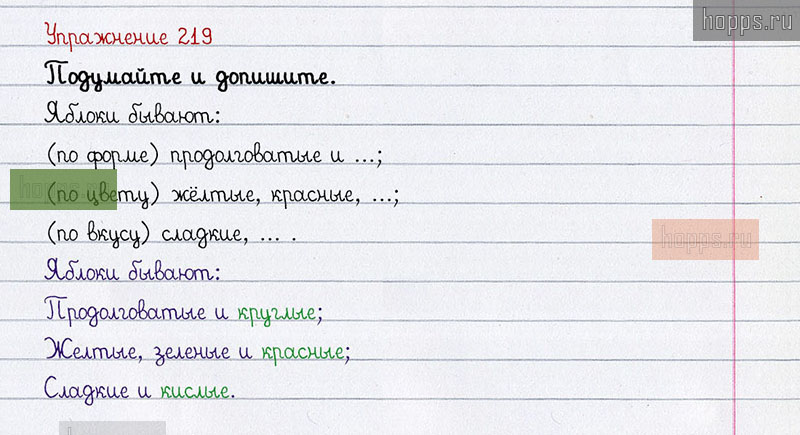 hopps.ru
Упражнение 219
Подумайте и допишите.
Яблоки бывают:
(по форме) продолговатые и ...;
(по цвету) жёлтые, красные, ...;
(по вкусу) сладкие, ... .
hopps.ru
Яблоки бывают:
Продолговатые и круглые;
Желтые, зеленые и красные;
Сладкие и кислые.